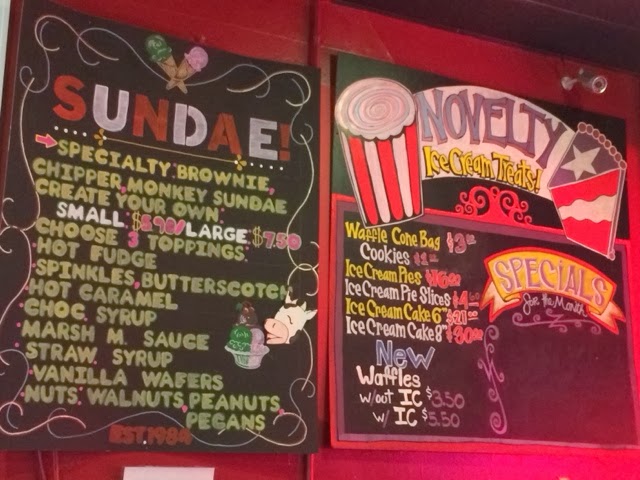 SUNDAE!
SPECIALTY: BROWNIE,
CHIPPER, MONKEY SUNDAE
CREATE YOUR OWN:
SMALL $5.98/LARGE $7.50
CHOOSE 3 TOPPINGS:
HOT FUDGE
SPINKLES, BUTTERSCOTCH
HOT CARAMEL
CHOC. SYRUP
MARSH M. SAUCE
STRAW. SYRUP
VANILLA WAFERS
NUTS: WALNUTS, PEANUTS,
PEGANS
EST 1984
NOVELTY
Ice Cream Treats!
Waffle Cone Bag $3.50
Cookies
Ice Cream Pies
Ice Cream Pie Slices
Ice Cream Cake 6"
Ice Cream Cake 8"
New
Waffles
w/out IC $3.50
w/ IC $5.50
SPECIALS
for the Month!